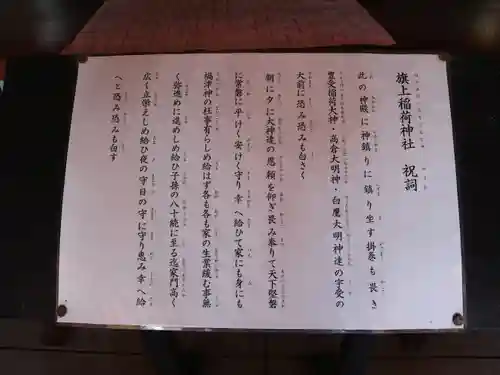 旗上稲荷神社　祝詞
此の神殿に神鎮りに鎮り坐す掛巻も畏き
豊受稲荷大神・高倉大明神・白鷹大明神達の宇豆の
大前に恐み恐みも白さく
朝に夕に大神達の恩頼を仰ぎ畏み奉りて天下堅磐
に常磐に平けく安けく守り幸へ給ひて家にも身にも
禍津神の枉事有らしめ給はず各も各も家の生業緩む事無
く弥進めに進めしめ給ひ子孫の八十続に至る迄家門高く
広く立栄えしめ給ひ夜の守日の守に守り恵み幸へ給
へと恐み恐みも白す